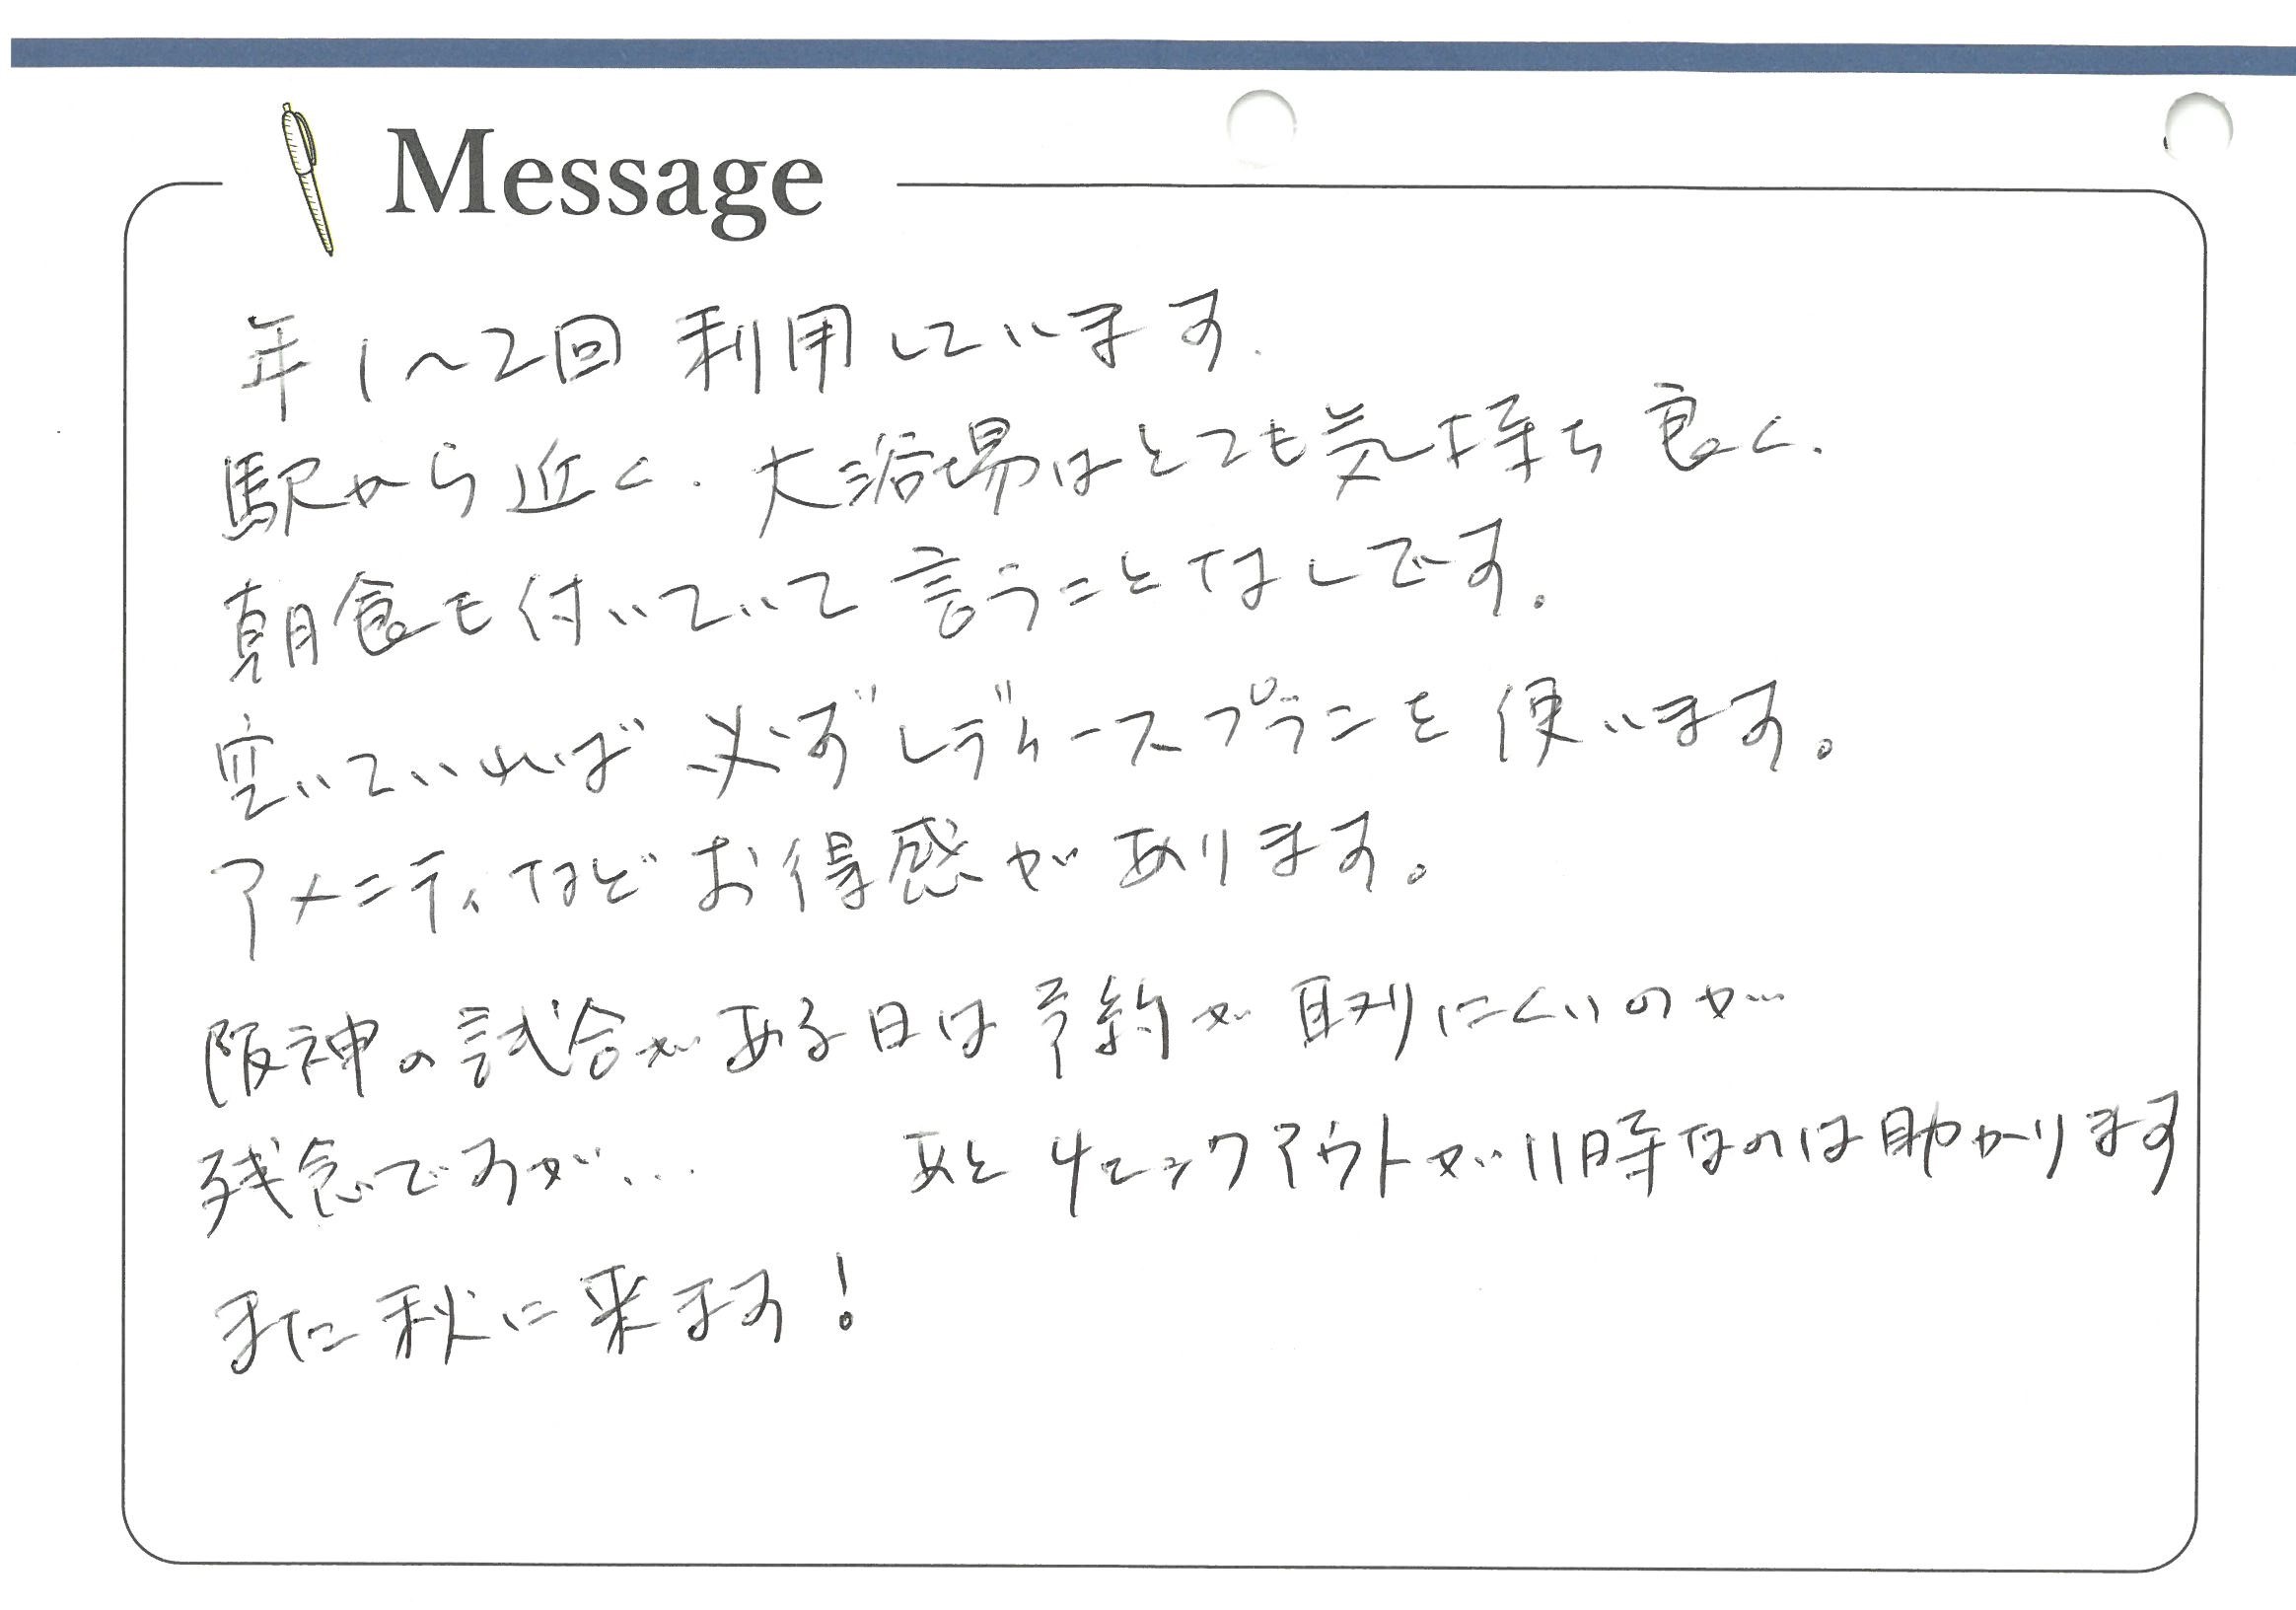 Message
年1〜2回 利用しています.
駅から近く、大浴場はとても気持ち良く、
朝食も付いていて言うことなしです。
空いていれば 必ずレディースプランを使います。
アメニティなどお得感があります。
阪神の試合がある日は予約が取りにくいのが…
残念ですが… あと チェックアウトが11時なのは助かります
また秋に来ます!